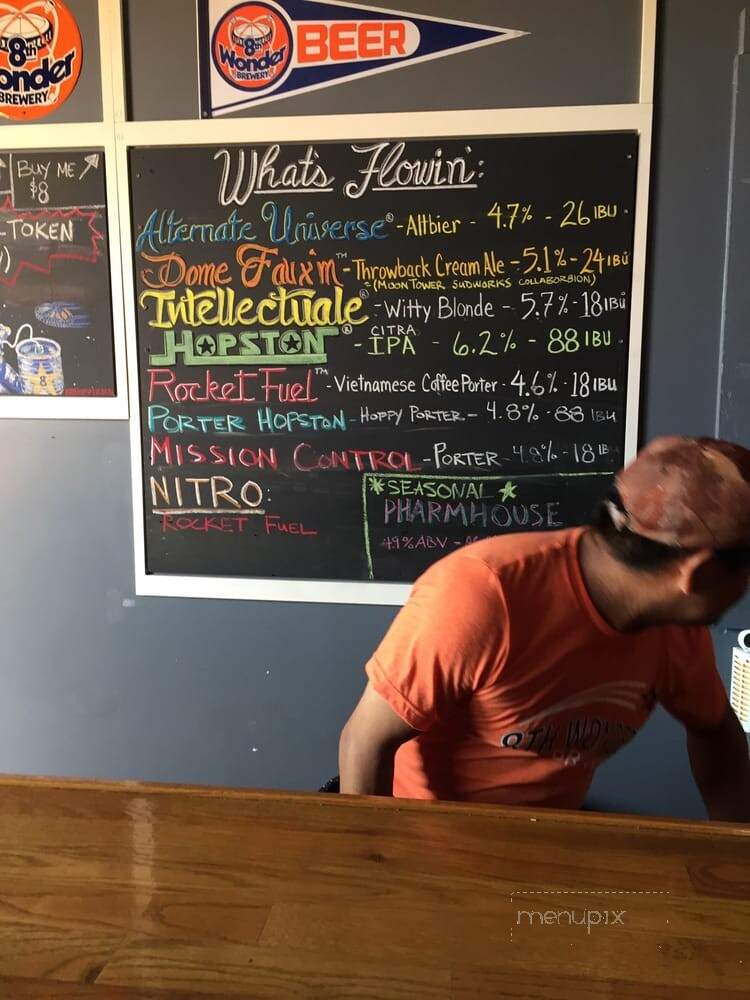 8th
Wonder
BREWERY
8th
Wonder
BREWERY
BEER
BUY ME
$8
TOKEN
What's Flowin':
Alternate Universe® - Altbier - 4.7% - 26 IBU
Dome Faux'm™ - Throwback Cream Ale - 5.1% - 24 IBU
(MOON TOWER SUDWORKS COLLABORATION)
Intellectuale® - Witty Blonde - 5.7% - 18 IBU
HOPSTON® - CITRA IPA - 6.2% - 88 IBU
Rocket Fuel™ - Vietnamese Coffee Porter - 4.6% - 18 IBU
PORTER HOPSTON - HOPPY PORTER - 4.8% - 88 IBU
MISSION CONTROL - PORTER - 4.8% - 18 IB
NITRO:
ROCKET FUEL
SEASONAL
PHARMHOUSE
4.9% ABV -
8TH WONDER
menupix